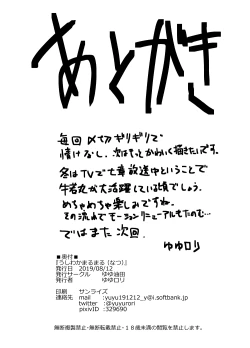 あとがき
毎回〆切ギリギリで
情けなし。次はもっとかわいく描きたいです。
冬はTVで七章放送中ということで
牛若丸が大活躍している頃でしょう。
めちゃめちゃ楽しみですね。
その流れでモーションリニューアルもたのむ…
ではまた次回。
ゆゆロリ
■奥付■
『うしわかまるまる（なつ）』
発行日 2019/08/12
発行サークル ゆゆ油田
発行者 ゆゆロリ
印刷 サンライズ
連絡先 mail :yuyu191212_y@i.softbank.jp
twitter :@yuyurori
pixivID :329690
無断複製禁止・無断転載禁止・18歳未満の閲覧を禁止します。